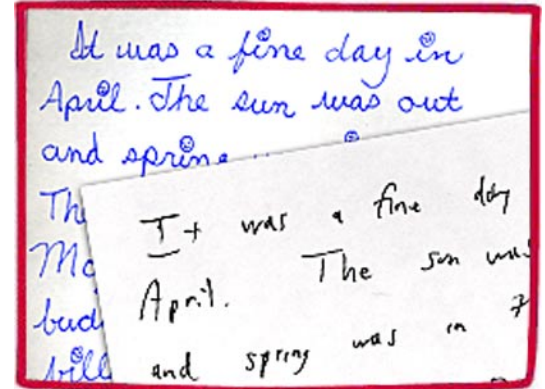 It was a fine day in
April. The sun was out
and spring
Th
Mo
bud
bill
It was a fine day
April. The sun was
and spring was in